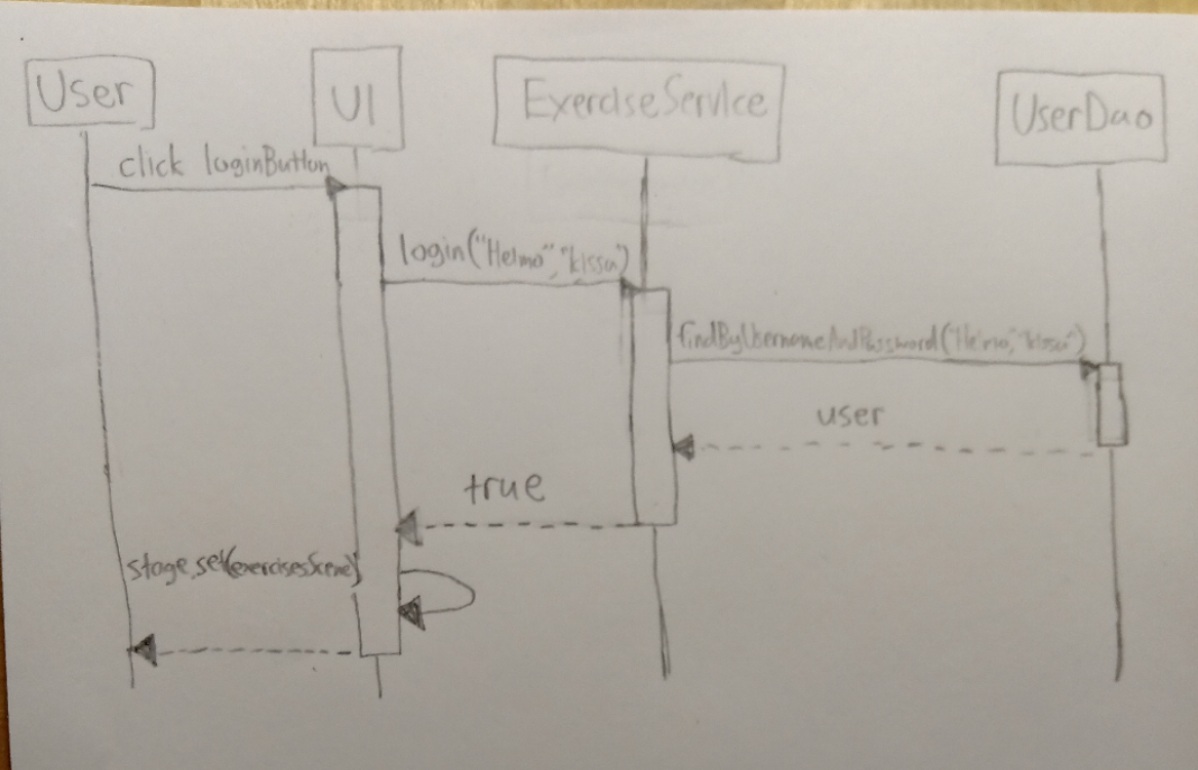 User
UI
ExerciseService
UserDao
click loginButton
login("Heimo","kissa")
findByUsernameAndPassword("Heimo","kissa")
user
true
stage.set(exercisesScene)